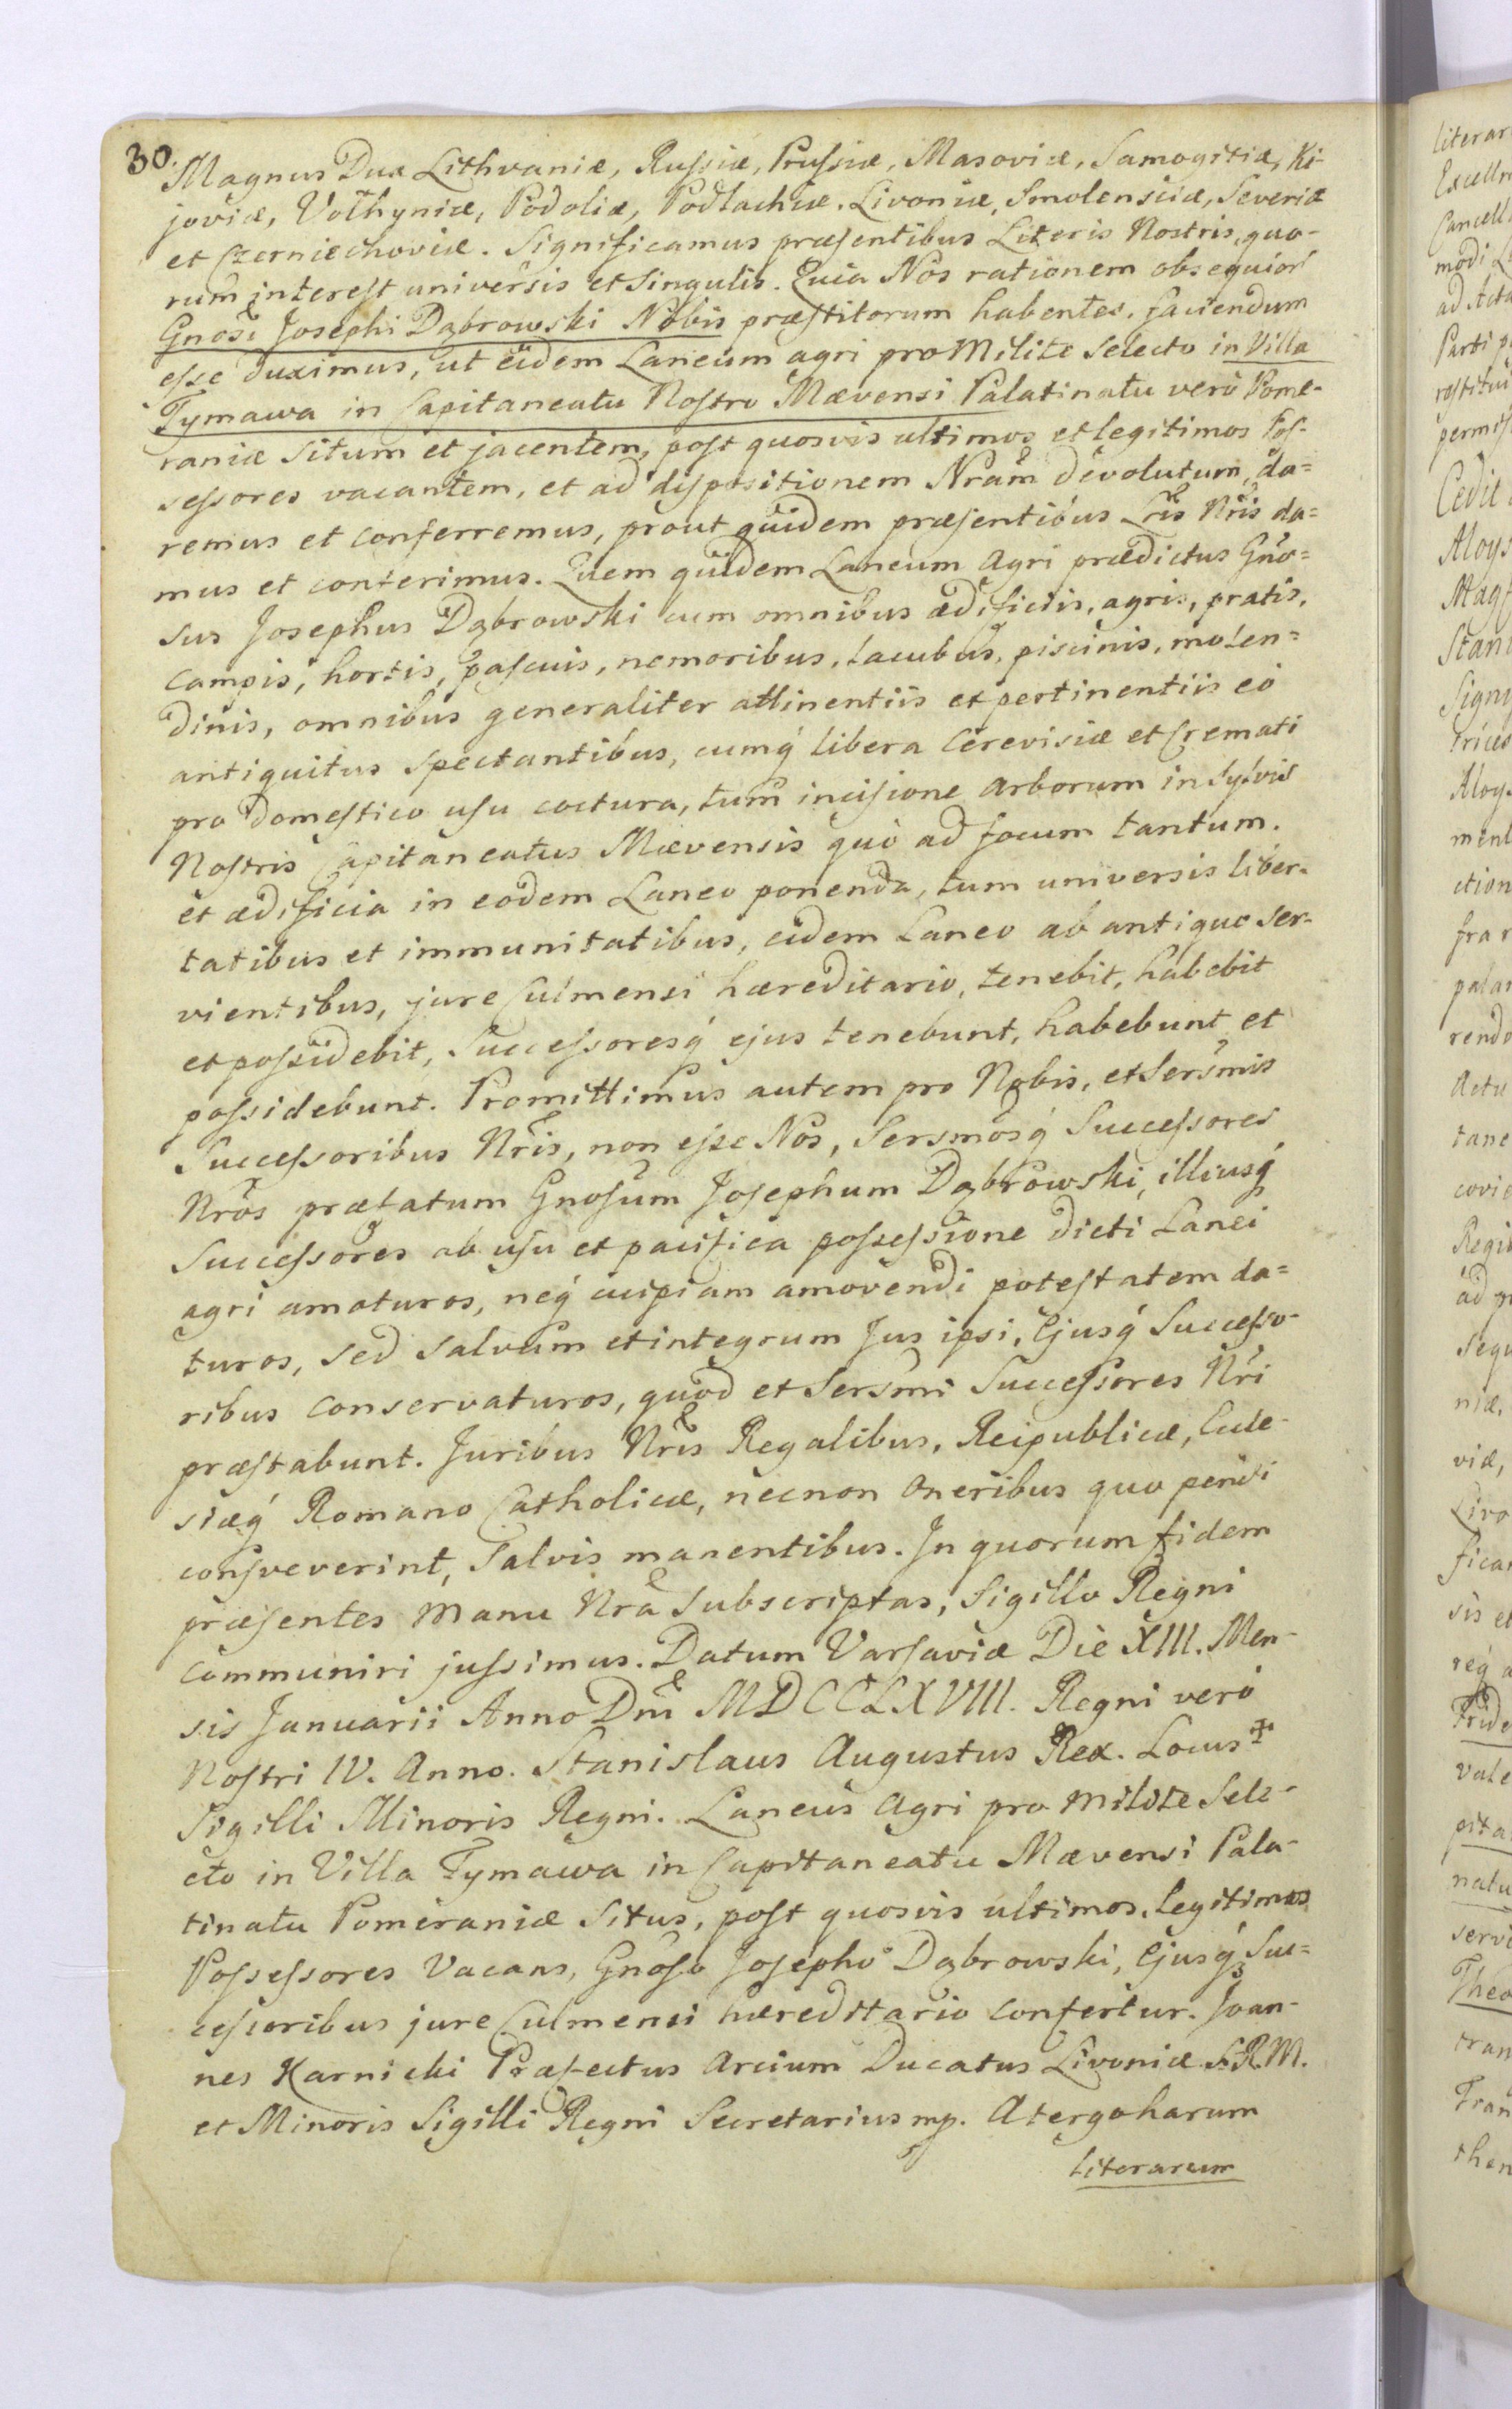 30.
Magnus Dux Lithvaniæ, Russiæ, Prussiæ, Masoviæ, Samogitiæ, Ki-
joviæ, Volhyniæ, Podoliæ, Podlachiæ, Livoniæ, Smolensciæ, Severiæ
et Czerniechoviæ. Significamus præsentibus Literis Nostris, quo-
rum interest universis et singulis. Quia Nos rationem obsequior
Gnosi Josephi Dąbrowski Nobis præstitorum habentes, faciendum
esse duximus, ut eidem Laneum agri pro Milite selecto in Villa
Tymawa in Capitaneatu Nostro Mævensi Palatinatu verò Pome-
raniæ situm et jacentem, post quosvis ultimos et legitimos Pos-
sessores vacantem, et ad dispositionem Nram devolutum, da=
remus et conferremus, prout quidem præsentibus Lris Nris da=
mus et conferimus. Quem quidem Laneum Agri prædictus Gno=
sus Josephus Dąbrowski cum omnibus ædificiis, agris, pratis,
campis, hortis, pascuis, nemoribus, lacubus, piscinis, molen=
dinis, omnibus generaliter attinentiis et pertinentiis eò
antiquitus spectantibus, cumq́ libera Cerevisiæ et Cremati
pro domestico usu coctura, tum incisione arborum in sylvis
Nostris Capitaneatus Mævensis quò ad focum tantum.
et ædificia in eodem Laneo ponenda, tum universis liber-
tatibus et immunitatibus, eidem Laneo ab antiquo ser-
vientibus, jure Culmensi hæreditario, tenebit, habebit
et possidebit, Successoresq́ ejus tenebunt, habebunt et
possidebunt. Promittimus autem pro Nobis, et Sersmis
Successoribus Nris, non esse Nos, Sersmosq́ Successores
Nros prælatum Gnosum Josephum Dąbrowski, illiusq́
Successores ab usu et pacifica possessione dicti Lanei
agri amoturos, neq́ cuipiam amovendi potestatem da=
turos, sed salvum et integrum Jus ipsi, Ejusq́ Successo-
ribus conservaturos, quod et Sersmi Successores Nri
præstabunt. Juribus Nris Regalibus, Reipublicæ, Eccle-
siæq́ Romano Catholicæ, necnon Oneribus quo pendi
consveverint, salvis manentibus. In quorum fidem
præsentes Manu Nra Subscriptas, Sigillo Regni
communiri jussimus. Datum Varsaviæ Die XIII. Men-
sis Januarii Anno Dni MDCCLXVIII. Regni verò
Nostri IV. Anno. Stanislaus Augustus Rex. Locus ✠
Sigilli Minoris Regni. Laneus Agri pro milite Sele-
cto in Villa Tymawa in Capitaneatu Mævensi Pala-
tinatu Pomeraniæ situs, post quosvis ultimos, legitimos
Possessores Vacans, Gnoso Josepho Dąbrowski, Ejusq́ Suc=
cessoribus jure Culmensi hæreditario confertur. Joan-
nes Karnicki Præfectus Arcium Ducatus Livoniæ S.R.M.
et Minoris Sigilli Regni Secretarius mp. A tergo harum
literarum